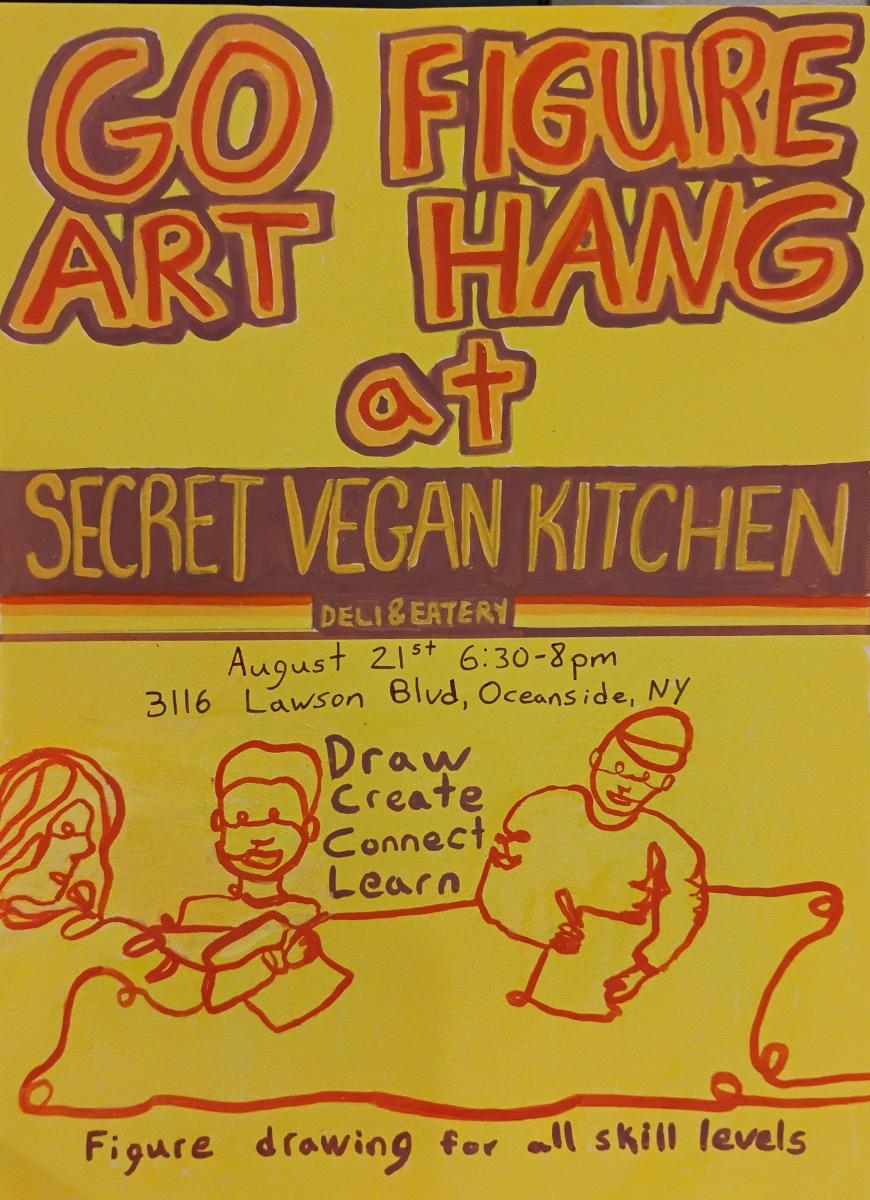 GO FIGURE
ART HANG
at
SECRET VEGAN KITCHEN
DELI & EATERY
August 21st 6:30-8pm
3116 Lawson Blvd, Oceanside, NY
Draw
Create
Connect
Learn
Figure drawing for all skill levels